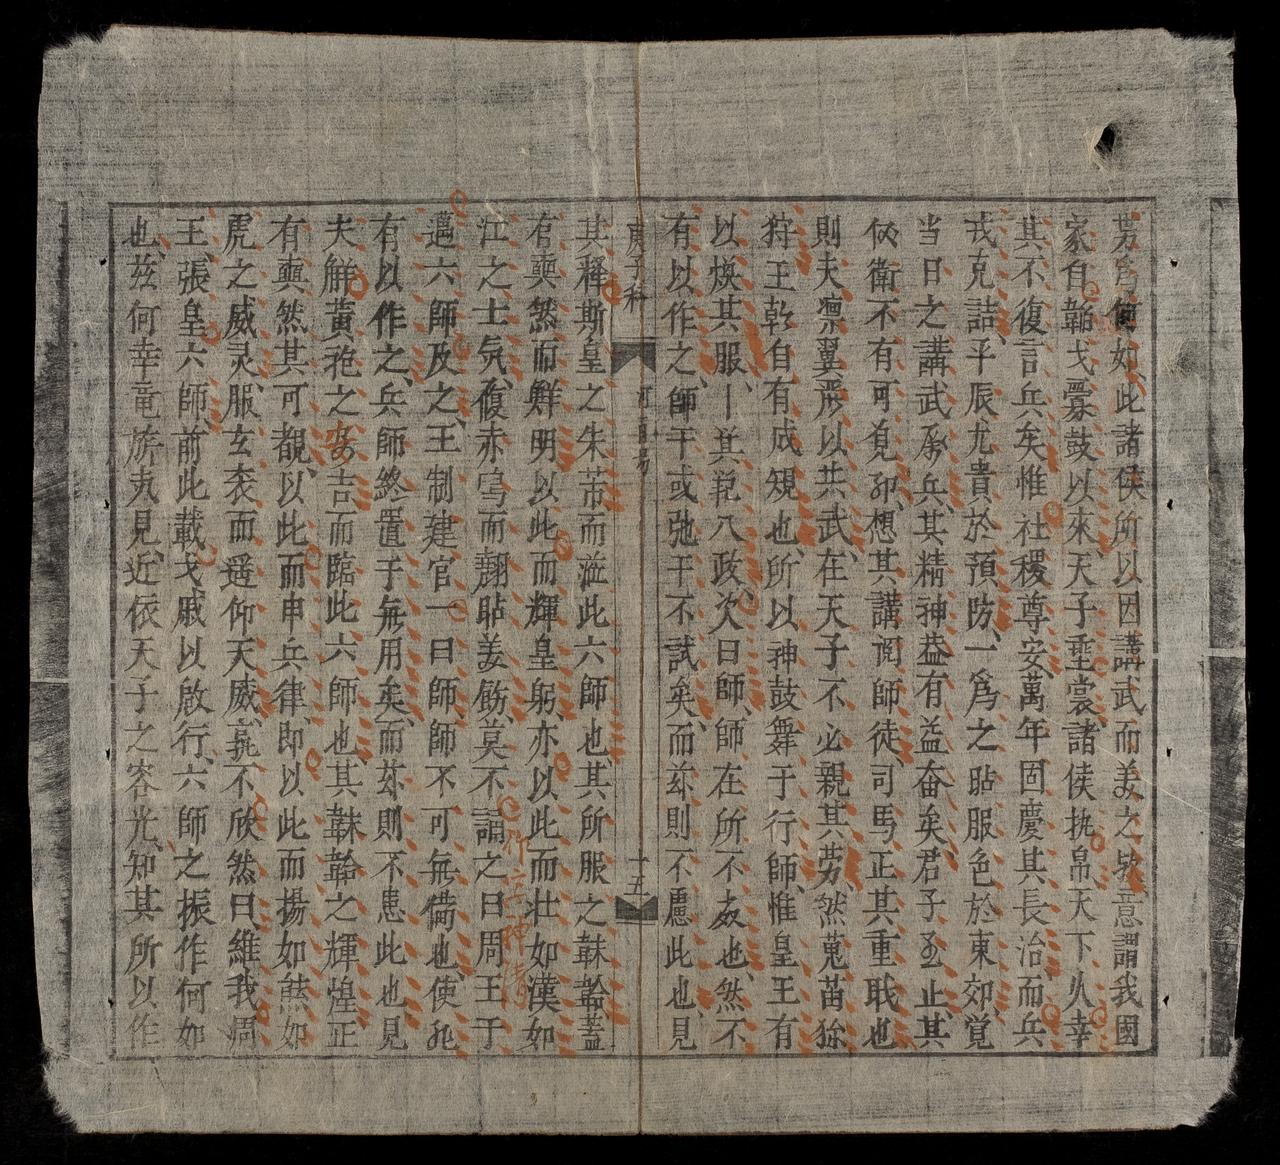 芳為何如此諸侯所以因講武而美之欤意謂我國
家自韜戈櫜鼓以來天子垂裳諸侯执帛天下久幸
其不復言兵矣惟社稷尊安萬年固慶其長治而兵
戎克詰平辰尤貴於預防一為之貼服色於東郊覚
当日之講武属兵其精神益有益奋矣君子至止其
侯衛不有可見邪想其講閲師徒司馬正其重職也
則夫凛翼严以共武在天子不必親其劳然蒐苗狝
狩王乾自有成規也所以神鼓舞于行師惟皇王有
以煥其服〡其範八政次曰師師在所不廃也然不
有以作之師干或弛干不試矣而玆則不慮此也見
庚子科
十五
其釋斯皇之朱芾而涖此六師也其所服之韎韐蓋
有奭然而鮮明以此而輝皇躬亦以此而壮如漢如
江之士気復赤舄而翻貼美飭莫不誦之曰周王于
邁六師及之王制建官一曰師師不可無備也使非
有以作之兵師終置于無用矣而玆則不患此也見
夫觧黄袍之安吉而臨此六師也其韎韐之輝煌正
有奭然其可覩以此而申兵律即以此而揚如熊如
虎之威灵服玄衮而遥仰天威孰不欣然曰維我周
王張皇六師前此載戈戚以啟行六師之振作何如
也玆何幸竜旂夫見近依天子之容光知其所以作